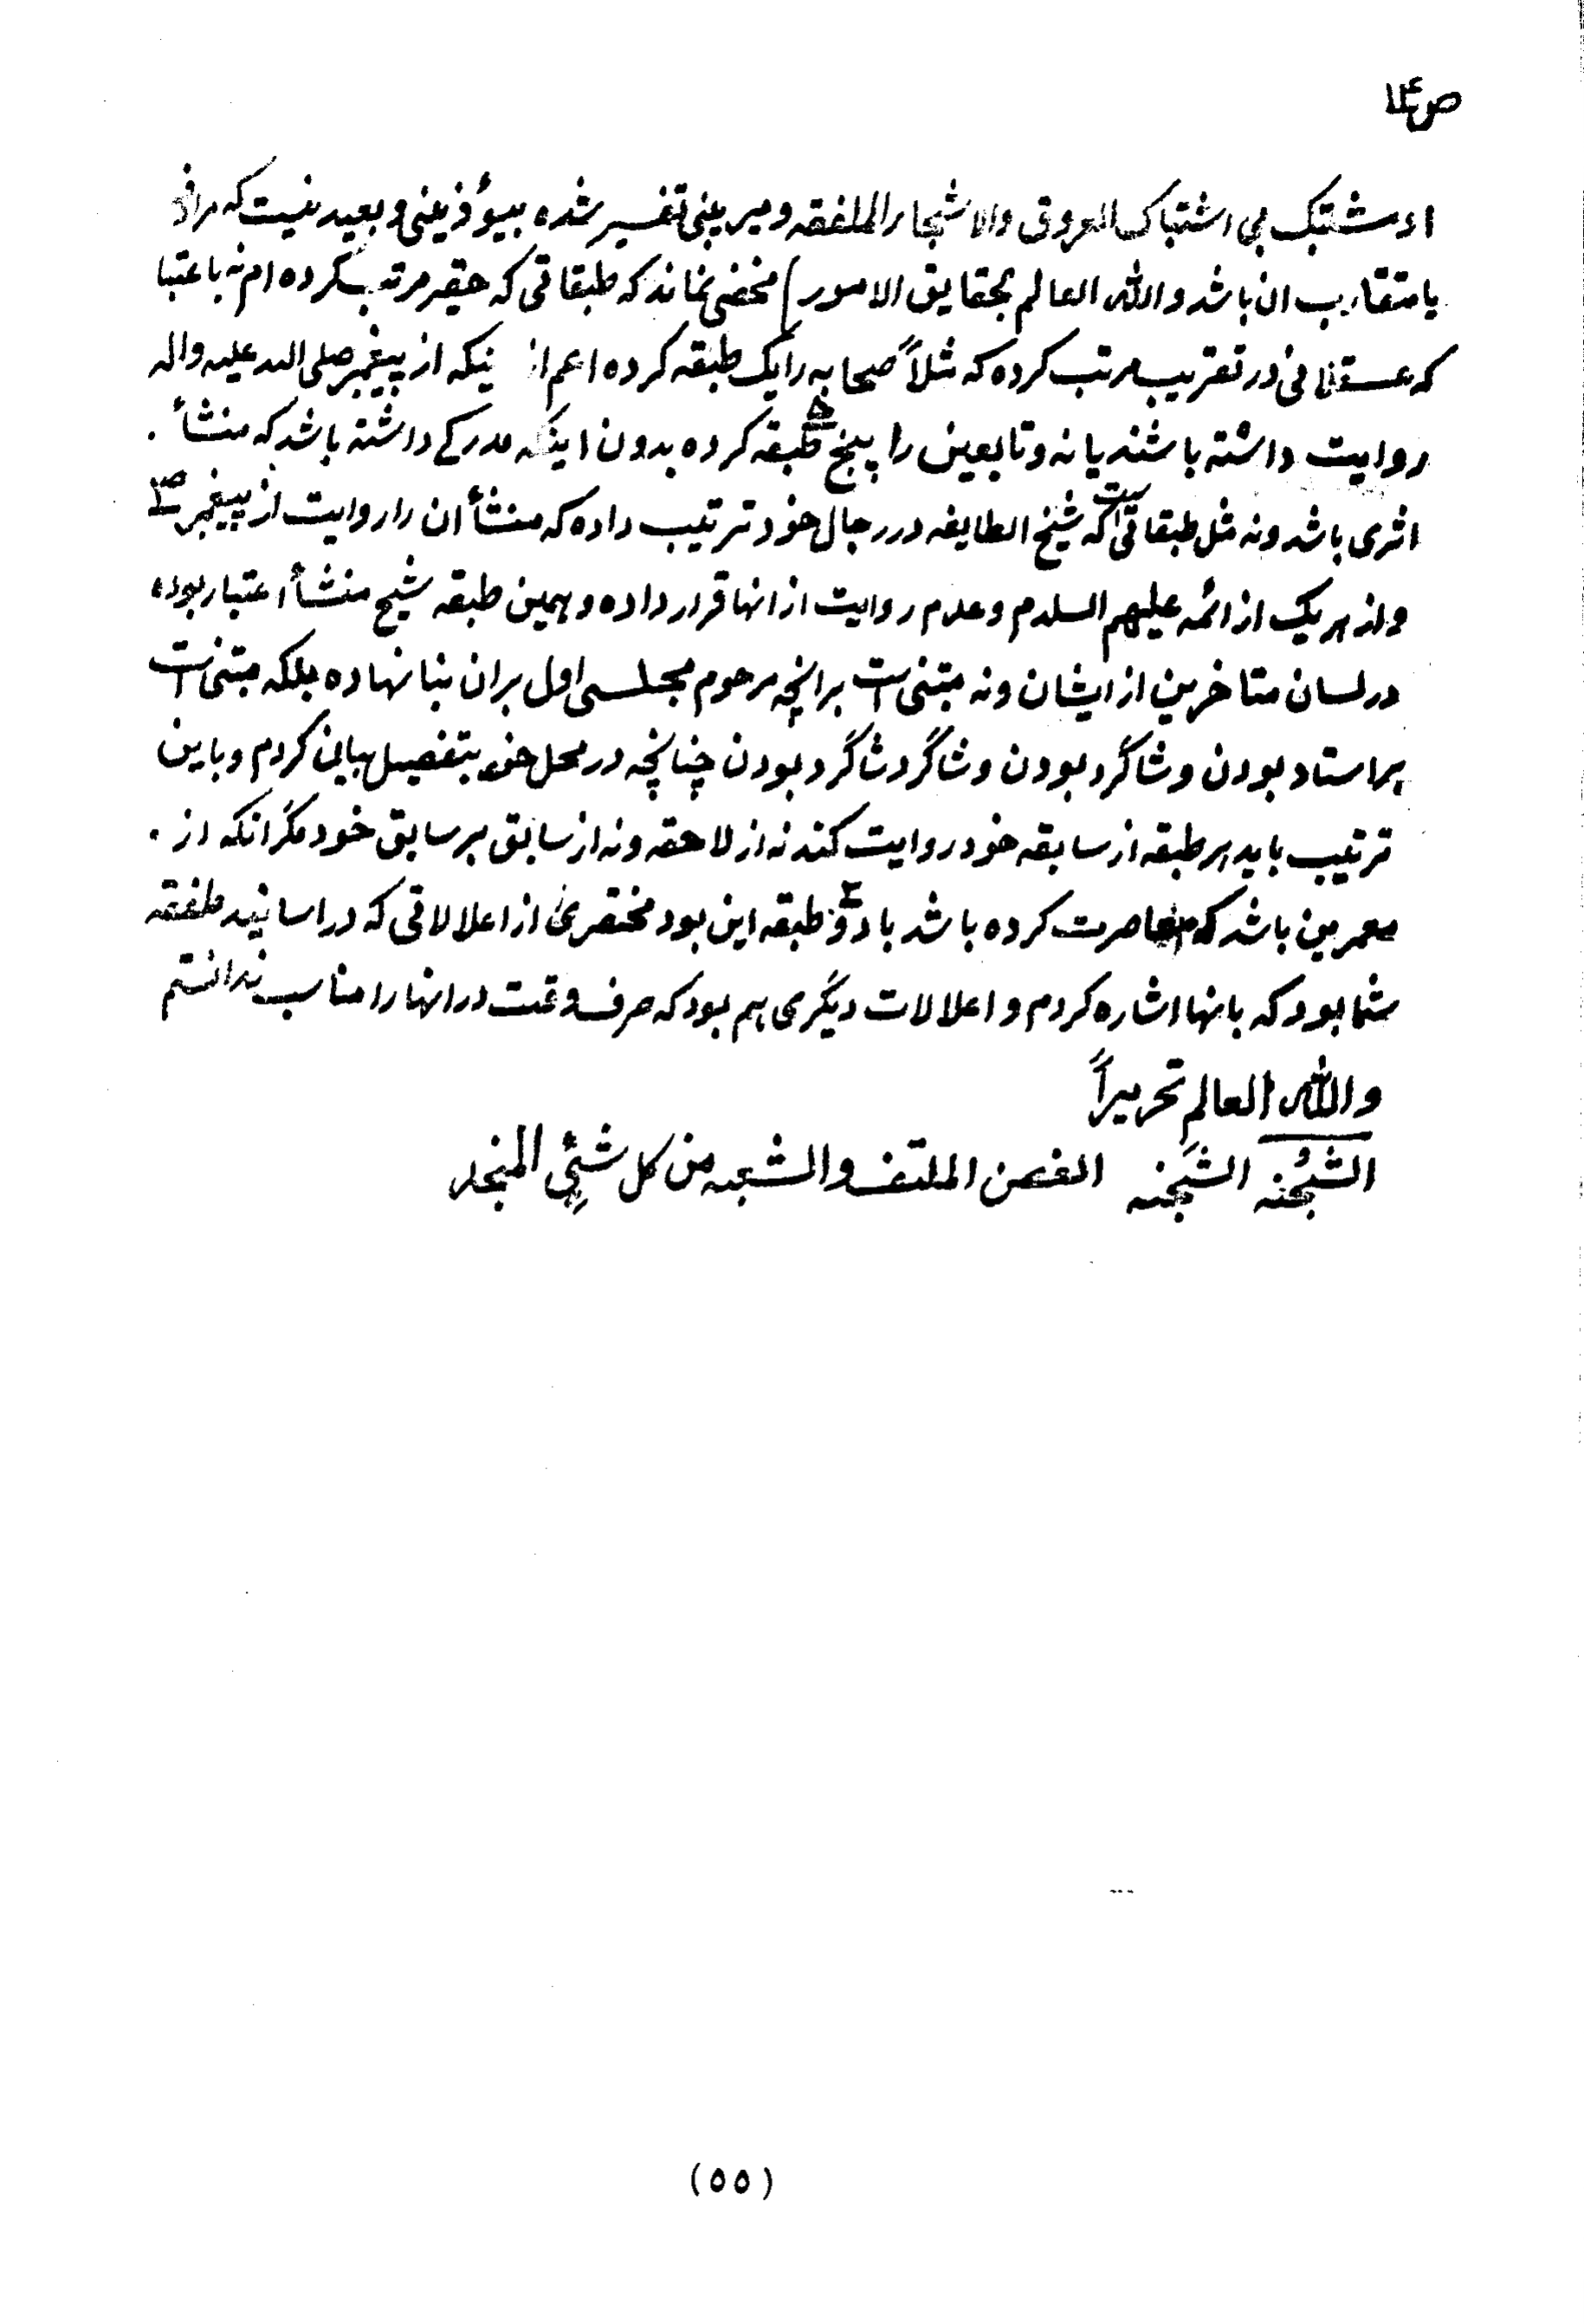 ص۱۴
او مشتبک بی اشتباک العروق والاشجار الملفقه و میربینی تفسیر شده بیوذینی و بعید نیست که مرادف
یا متقارب ان باشد والله العالم بحقایق الامور) مخفی نماند که طبقاتی که حقیر مرتب کرده ام نه باعتبا
که عسقلانی در تقریب مرتب کرده که مثلاً صحابه را یک طبقه کرده اعم از ینکه از پیغمبر صلی الله علیه واله
روایت داشته باشند یا نه و تابعین را پنج ۵ طبقه کرده بدون اینکه مدرکے داشته باشد که منشأ
اثری باشد ونه مثل طبقاتی است که شیخ الطایفه در رجال خود ترتیب داده که منشأ ان را روایت از پیغمبر ص
و از هریک از ائمه علیهم السلام و عدم روایت از انها قرار داده و همین طبقه شیخ منشأ اعتبار بوده
در لسان متاخرین از ایشان ونه مبتنی است برانچه مرحوم مجلسی اول بران بنا نهاده بلکه مبتنی است
بر استاد بودن و شاگرد بودن و شاگرد شاگرد بودن چنانچه در محل خود بتفصیل بیان کردم و باین
ترتیب باید هر طبقه از سابقه خود روایت کند نه از لاحقه ونه از سابق بر سابق خود مگر انکه از
معمرین باشد که معاصرت کرده باشد با دو ۲ طبقه این بود مختصری از اعلالاتی که در اسانید ملفقه
شما بود که بانها اشاره کردم و اعلالات دیگری هم بود که صرف وقت در انها را مناسب ندانستم
والله العالم تحریراً
الشُجنه الشَجنه الغصن الملتف والشعبه من کل شیٍٔ المنجد
(٥٥)